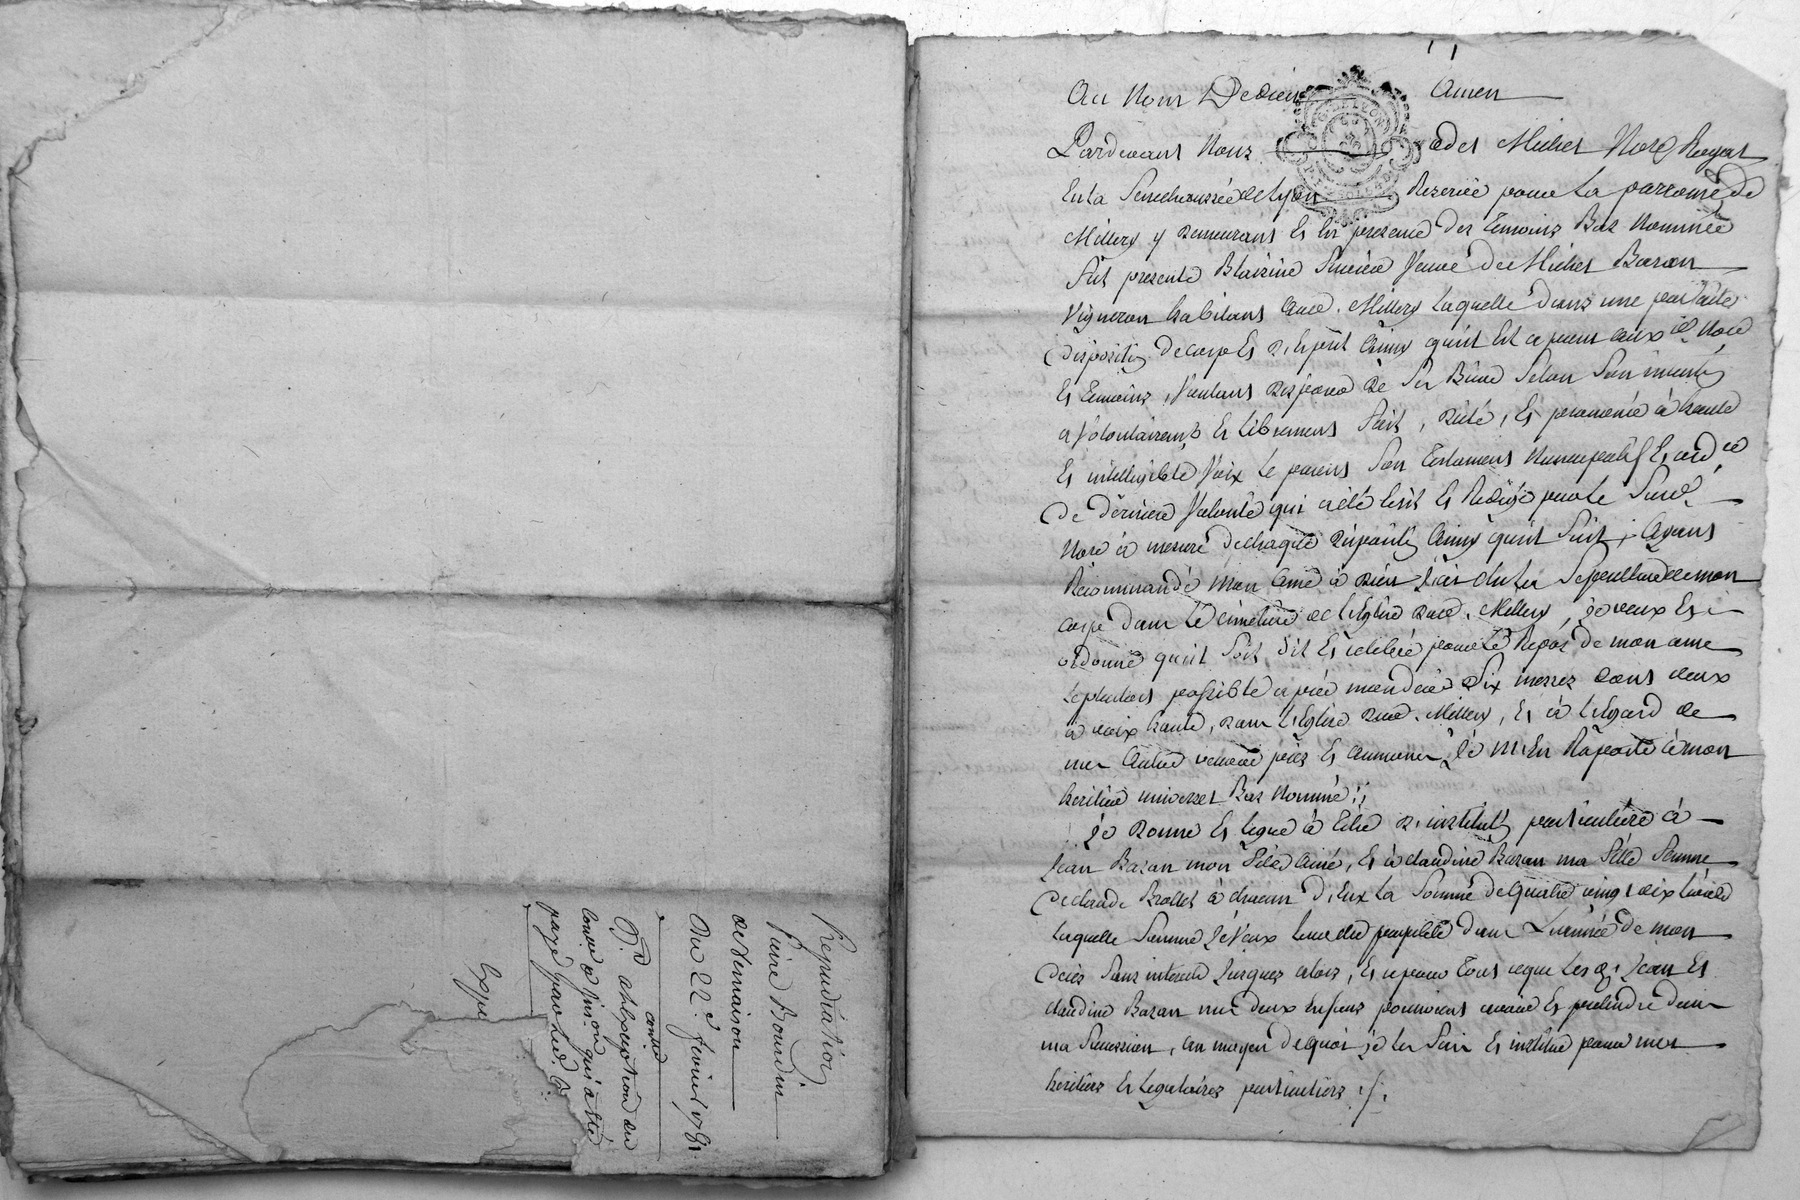 Repudiation
Pierre Bourdin
de Vernaison
Du 22e. fevrier 1781.
controlle
Expé
Au Nom De dieu Amen
Pardevant Nous Michel Nore Royal
En la Senechaussée de Lyon Reservé pour La paroisse De
Millery y Demeurant Et En presence Des temoins Bas Nommés
fut presente Blaizine veuve De Michel Bazan
Vigneron habitant Aud. Millery Laquelle Dans une parfaite
Disposition De corps Et D'esprit Ainsy qu'il Est apparu auxd. Nore
Et temoins, Voulant Disposer De Ses Biens Selon Son intention
a Volontairemt Et Librement fait, Dicté, Et prononcé à haute
Et intelligible Voix Le present Son testament Nuncupatif Et ordce
De Derniere Volonté qui a été Ecrit Et Redigé par Le Susd.
Nore à mesure De chaque Disposition Ainsy qu'il Suit ; Ayant
Recommandé Mon Ame à Dieu Sepulture De mon
corps Dans Le cimetiere De L'Eglise Dud. Millery, je veux Et
ordonne qu'il Soit Dit Et celebré pour Le Repos De mon ame
Le plutot possible après mon Decès Dix messes Dont deux
à voix haute, Dans L'Eglise Dud. Millery, Et à L'Egard De
mes Autres œuvres pies Et Aumones, Je M'En Raporte à mon
heritier universel Bas Nommé ;
Je Donne Et Legue à titre D'institution particuliere à
Jean Bazan mon fils Ainé, Et à claudine Bazan ma fille femme
De claude à chacun D'Eux La Somme De Quatre vingt dix Livres
Laquelle Somme Je Veux Leur etre payable Dans L'année De mon
Decès Sans interets Jusques alors, Et ce pour tous ce que Lesd. Jean Et
claudine Bazan mes deux Enfans pourroient avoir Et pretendre Dans
ma Succession, Au moyen De quoi je Les fais Et institue pour mes
heritiers Et Legataires particuliers ./.